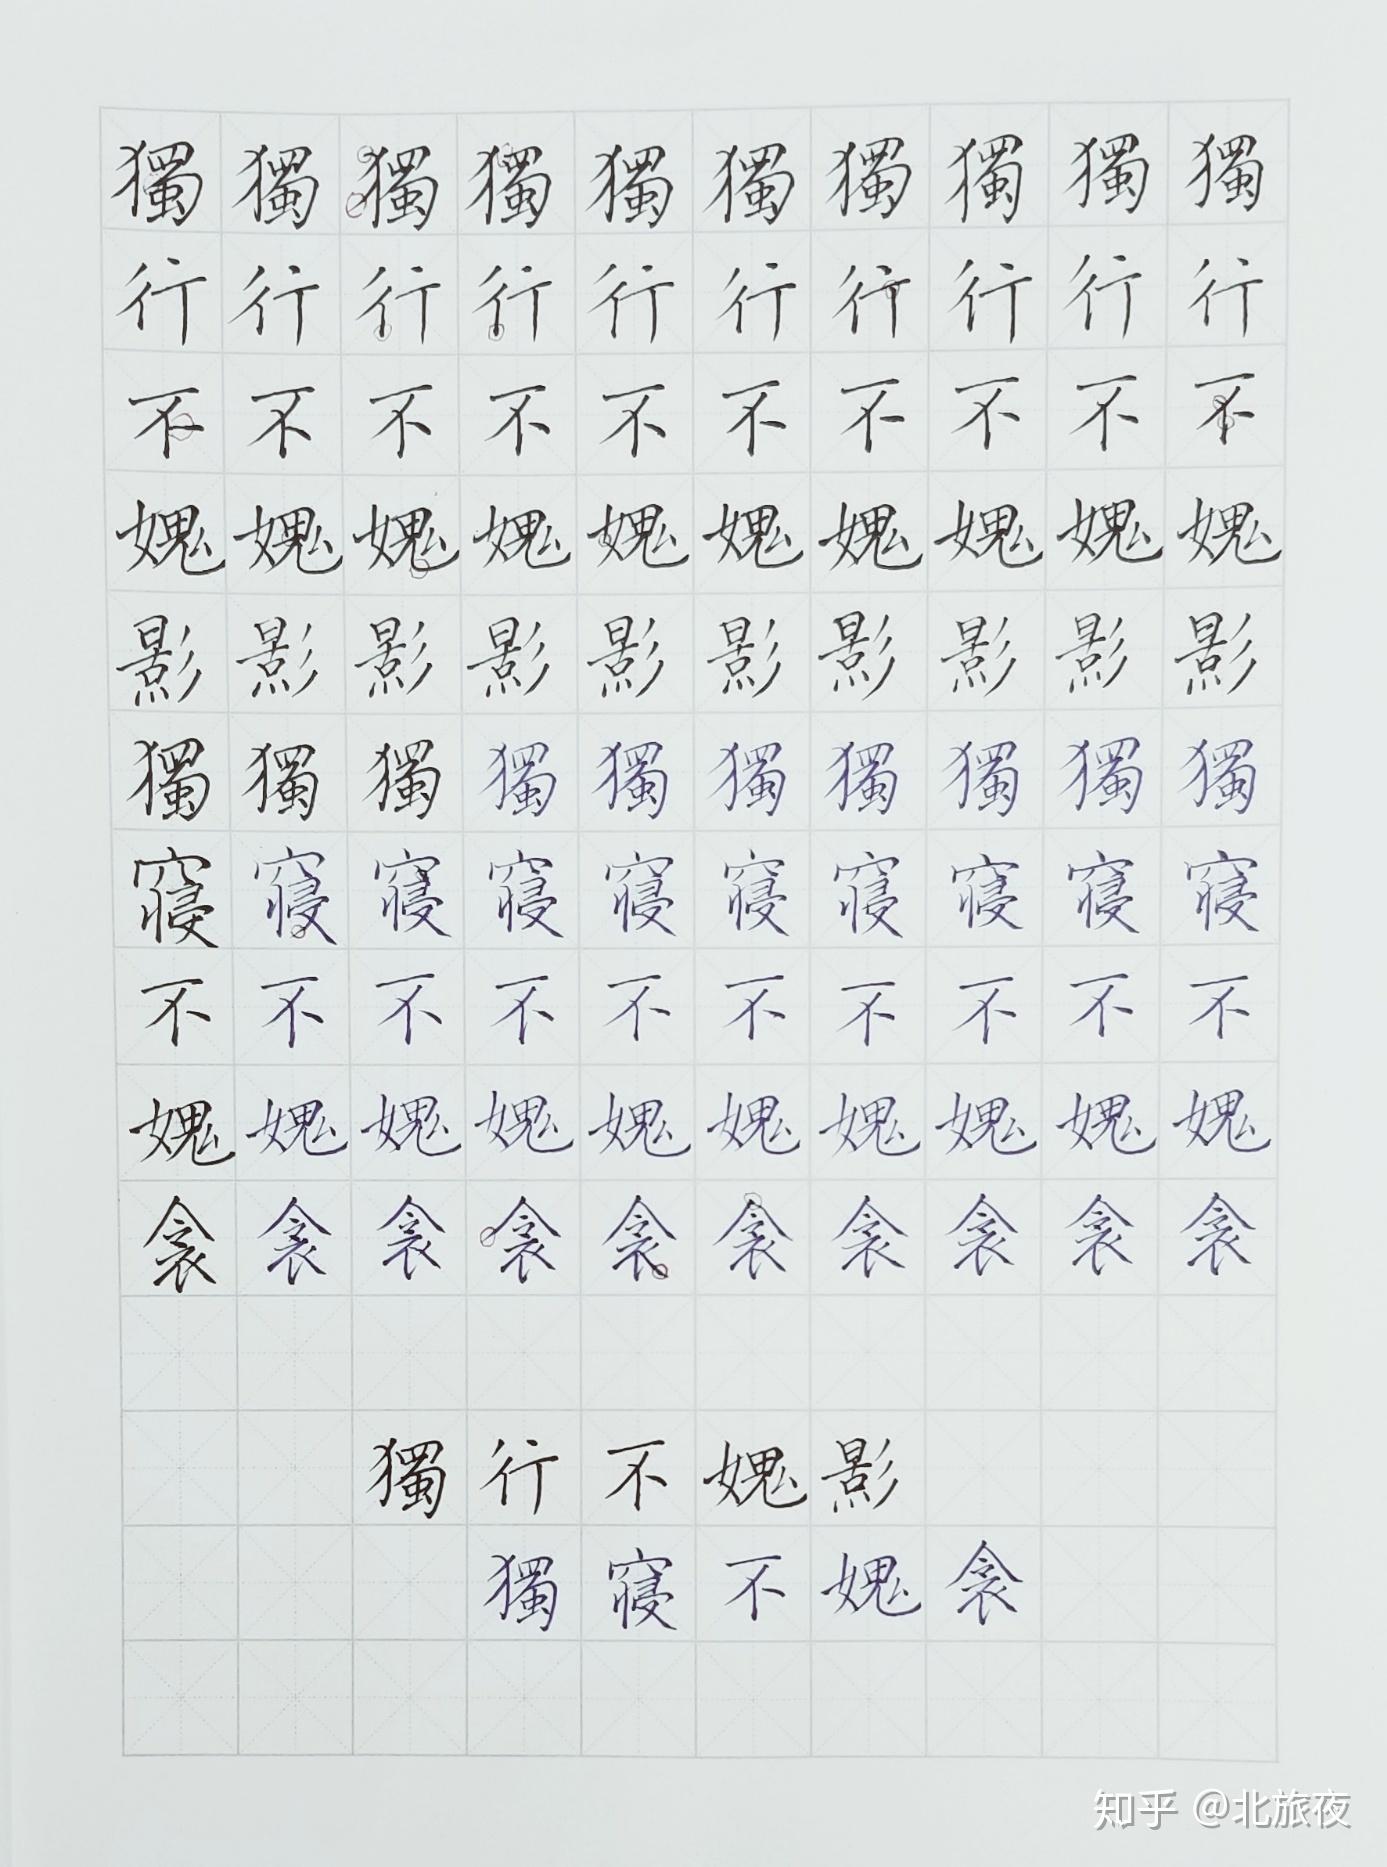 獨獨獨獨獨獨獨獨獨獨
行行行行行行行行行行
不不不不不不不不不不
媿媿媿媿媿媿媿媿媿媿
影影影影影影影影影影
獨獨獨獨獨獨獨獨獨獨
寝寝寝寝寝寝寝寝寝寝
不不不不不不不不不不
媿媿媿媿媿媿媿媿媿媿
衾衾衾衾衾衾衾衾衾衾
獨行不媿影
獨寝不媿衾
知乎 @北旅夜